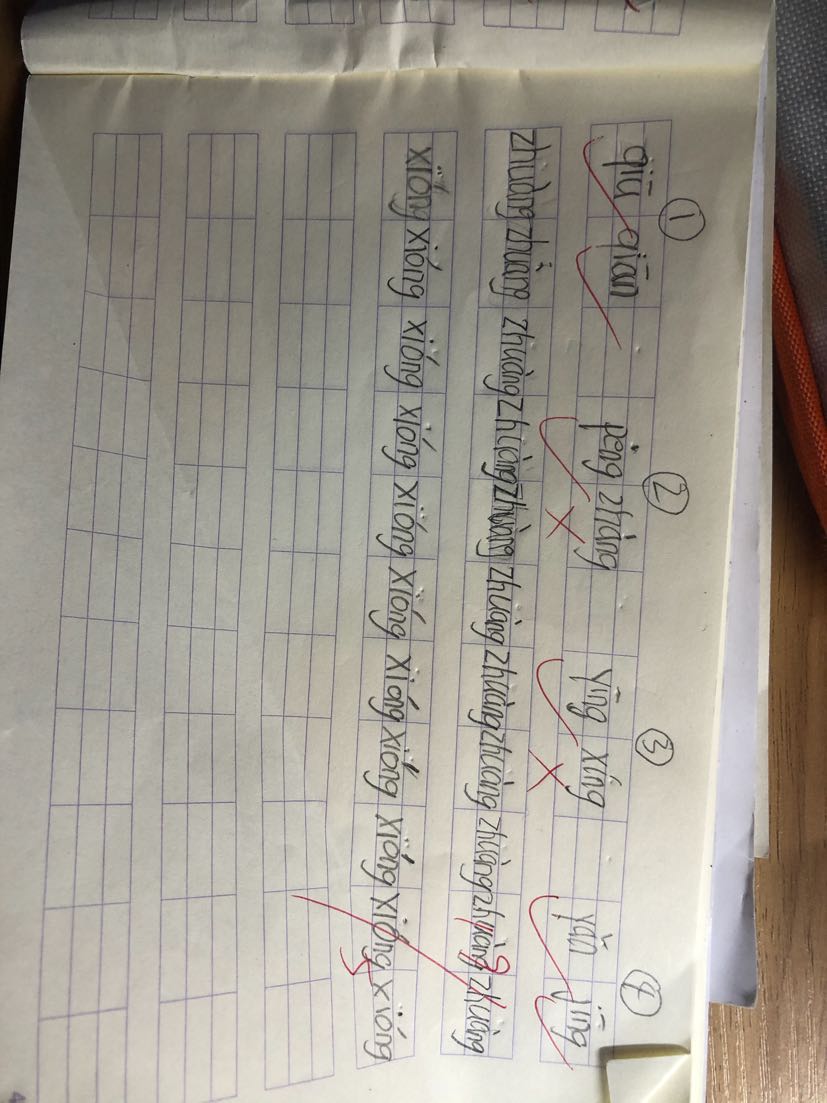 ① ② ③ ④
qiū qiān péng zhàng yīng xíng yǎn jīng
zhuàng zhuàng zhuàng zhuàng zhuàng zhuàng zhuàng zhuàng zhuàng zhuàng zhuàng
xióng xióng xióng xióng xióng xióng xióng xióng xióng xióng xióng